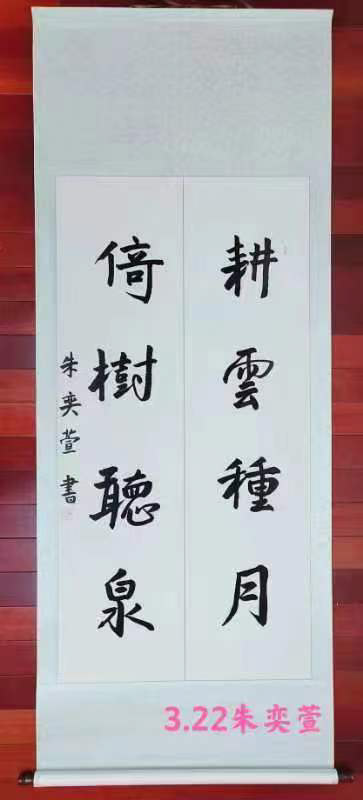 耕雲種月
倚樹聽泉
朱奕萱書
3.22朱奕萱